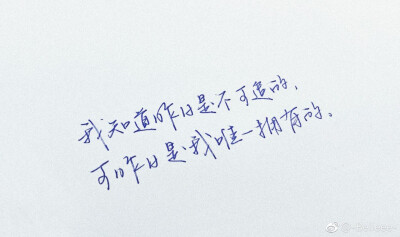 我知道昨日是不可追的，
可昨日是我唯一拥有的。